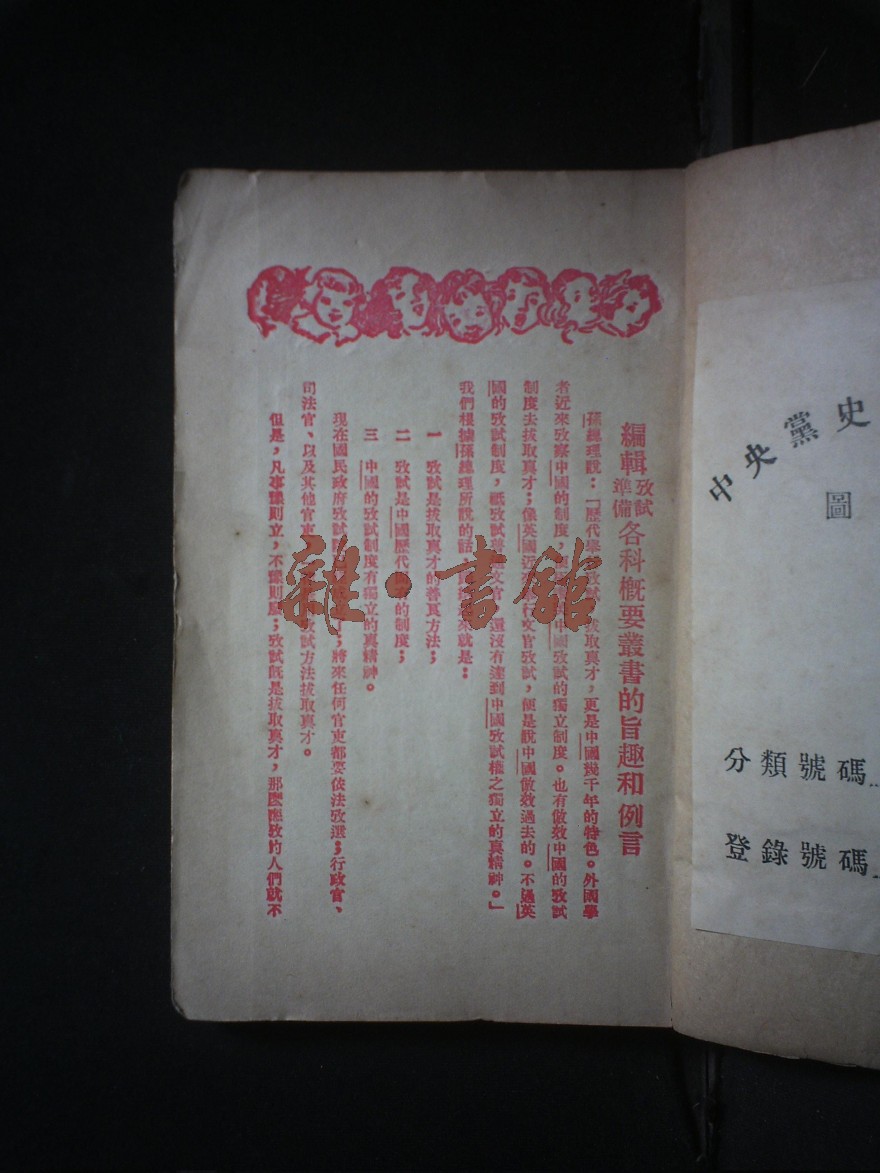 編輯攷試準備各科概要叢書的旨趣和例言
孫總理說:「歷代舉 攷試 拔取真才,更是中國幾千年的特色。外國學
者近來攷察中國的制度,便 中國攷試的獨立制度。也有倣效中國的攷試
制度去拔取真才;像英國近 行文官攷試,便是說中國倣效過去的。不過英
國的攷試制度,祇攷試 文官 還沒有達到中國攷試權之獨立的真精神。」
我們根據孫總理所說的話 來就是:
一 攷試是拔取真才的善良方法;
二 攷試是中國歷代 的制度;
三 中國的攷試制度有獨立的真精神。
現在國民政府攷試 了;將來任何官吏都要依法攷選;行政官、
司法官、以及其他官吏 攷試方法拔取真才。
但是,凡事豫則立,不豫則廢;攷試既是拔取真才,那麼應攷的人們就不
雜·書館
中央黨史
圖
分類號碼
登錄號碼